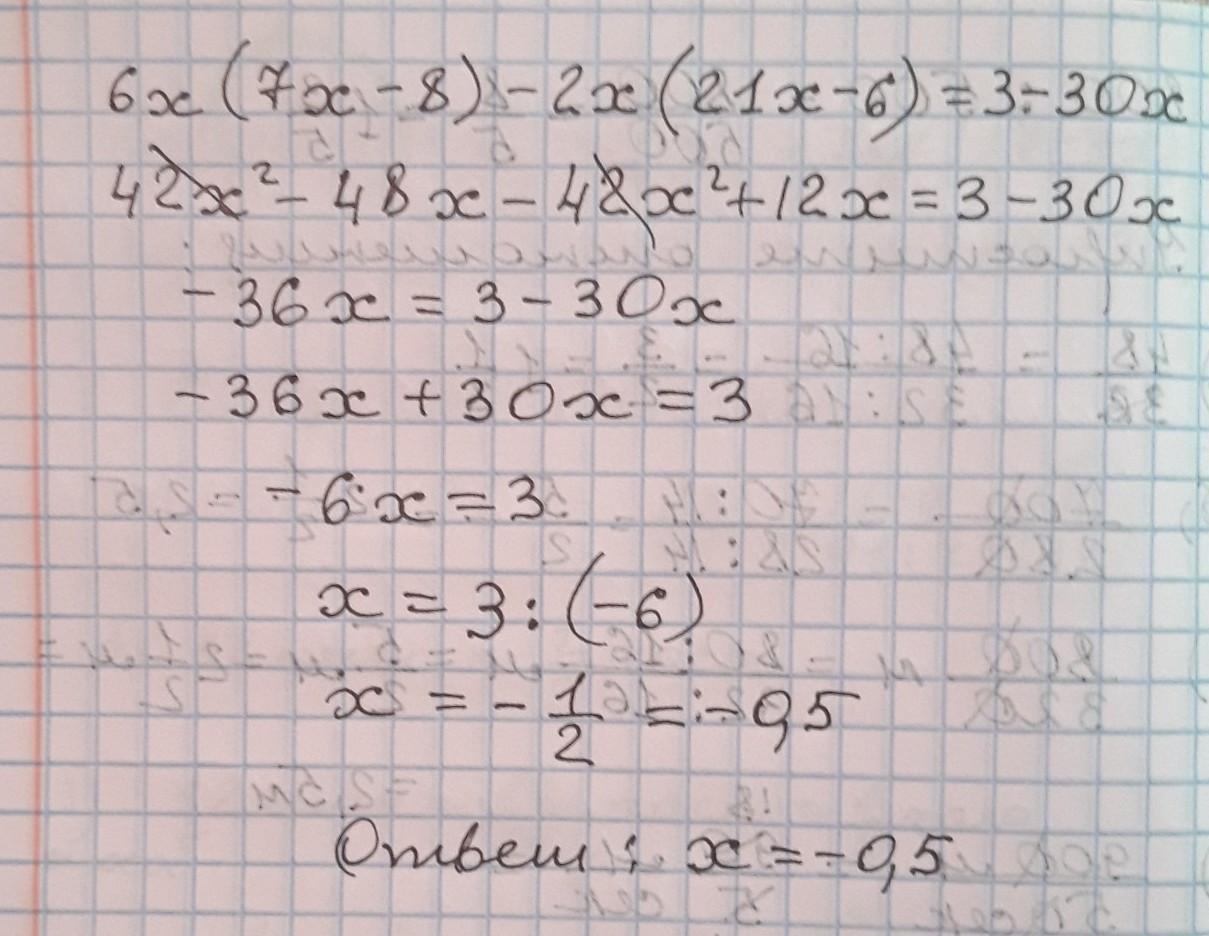 6x(7x-8)-2x(21x-6)=3-30x
42x²-48x-42x²+12x=3-30x
-36x=3-30x
-36x+30x=3
-6x=3
x=3:(-6)
x=-1/2=-0,5
Ответ: x=-0,5